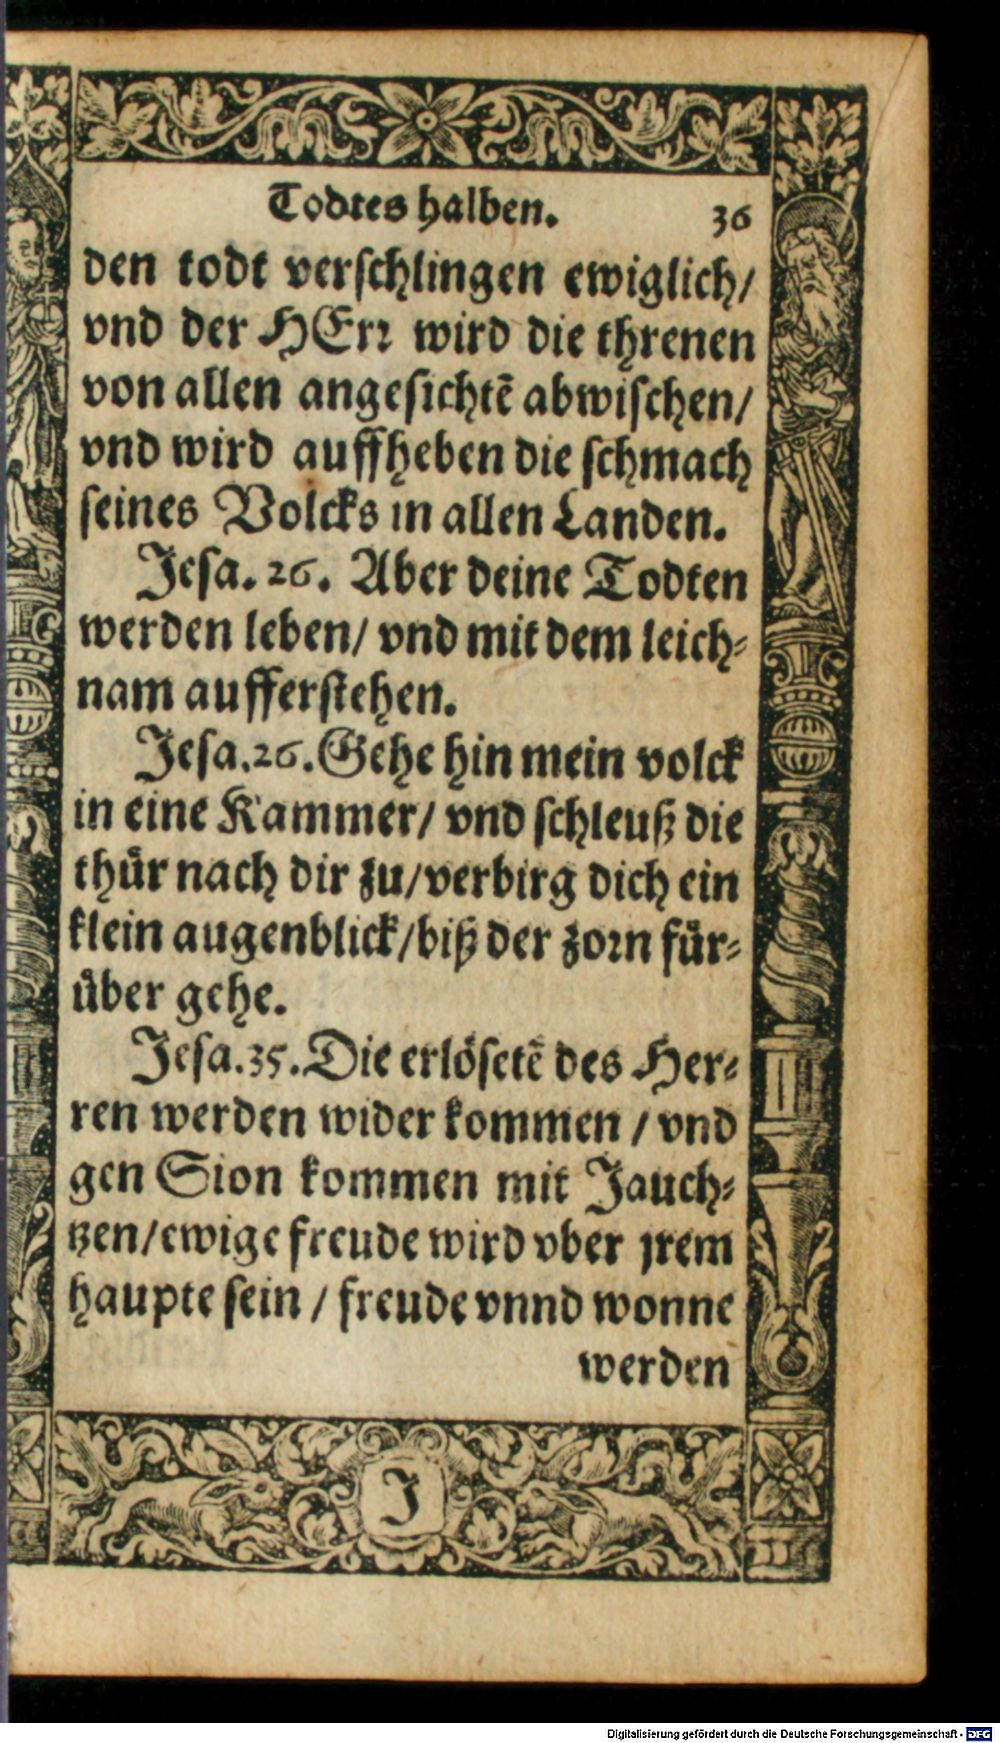 Todtes halben. 36
den todt verſchlingen ewiglich/
vnd der HErꝛ wird die threnen
von allen angeſichtē abwiſchen/
vnd wird auffheben die ſchmach
ſeines Volcks in allen Landen.
Jeſa. 26. Aber deine Todten
werden leben/ vnd mit dem leich⸗
nam aufferſtehen.
Jeſa. 26. Gehe hin mein volck
in eine Kammer/ vnd ſchleuß die
thuͤr nach dir zu/ verbirg dich ein
klein augenblick/ biß der zoꝛn fuͤr⸗
uͤber gehe.
Jeſa. 35. Die erloͤſetē des Her⸗
ren werden wider kommen / vnd
gen Sion kommen mit Jauch⸗
tzen/ ewige freude wird vber jrem
haupte ſein / freude vnnd wonne
werden
J
Digitalisierung gefördert durch die Deutsche Forschungsgemeinschaft - DFG